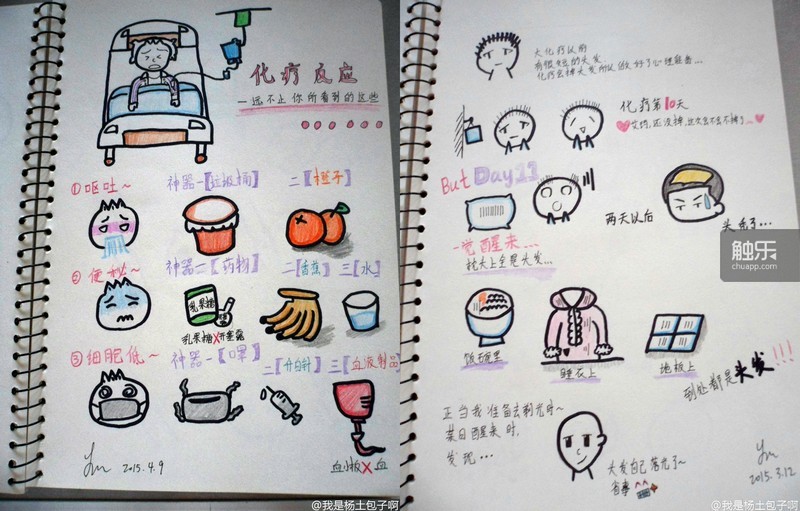 化疗反应
一远不止你所看到的这些
......
①呕吐~ 神器一【垃圾桶】 二【橙子】
②便秘~ 神器一【药物】 二【香蕉】 三【水】
乳果糖
乳果糖X开塞露
③细胞低~ 神器一【口罩】 二【升白针】 三【血液制品】
血小板X血
2015.4.9
@我是杨土包子啊
大化疗以前
有很短的头发
化疗会掉头发所以做好了心理准备...
化疗第10天
艾玛,还没掉,这次会不会不掉了...
But Day
一觉醒来...
枕头上全是头发...
两天以后
头秃了...
触乐
chuapp.com
饭碗里 睡衣上 地板上
到处都是头发!!!
正当我准备去剃光时~
某日醒来时,
发现...
头发自己落光了~
省事
2015.3.12
@我是杨土包子啊